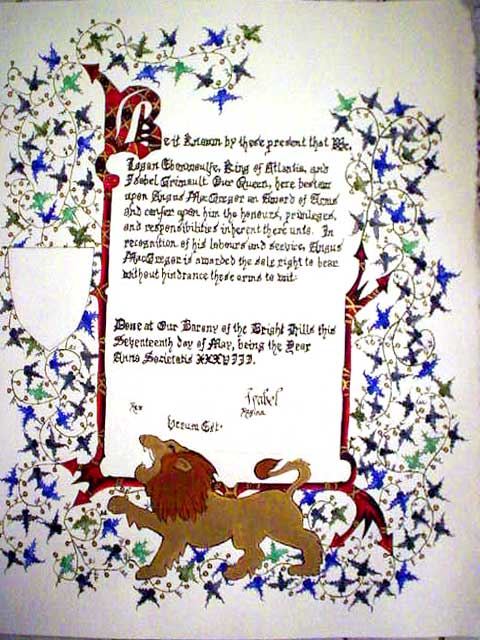 Be it Known by these present that We,
Logan Ebonwoulfe, King of Atlantia, and
Isobel Grimault Our Queen, here bestow
upon Angus MacGregor an Award of Arms
and confer upon him the honours, privileges,
and responsibilities inherent there unto. In
recognition of his labours and service, Angus
MacGregor is awarded the sole right to bear
without hindrance these arms to wit:
Done at Our Barony of the Bright Hills this
Seventeenth day of May, being the Year
Anno Societatis XXXVIII.
Isabel
Rex
Regina
Verum Est.